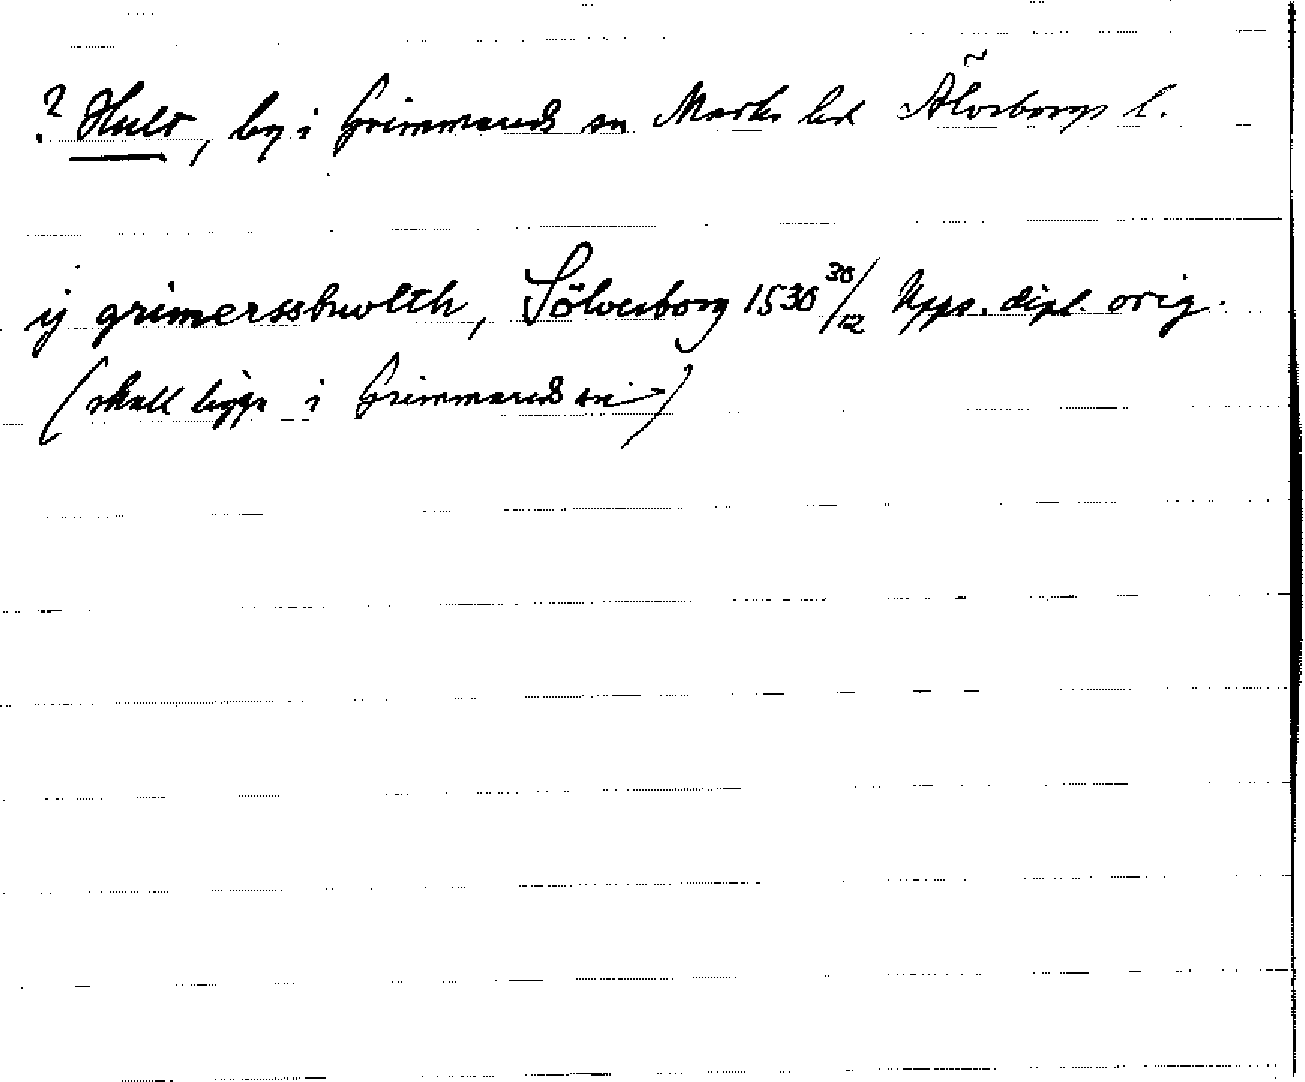 ? Hult, by i Grimmareds sn Marks hd Älvsborgs l.
ij grimersshwlth, Sölvesborg 1530 30/12 Upps. dipl. orig.
(skall ligga i Grimmareds sn)